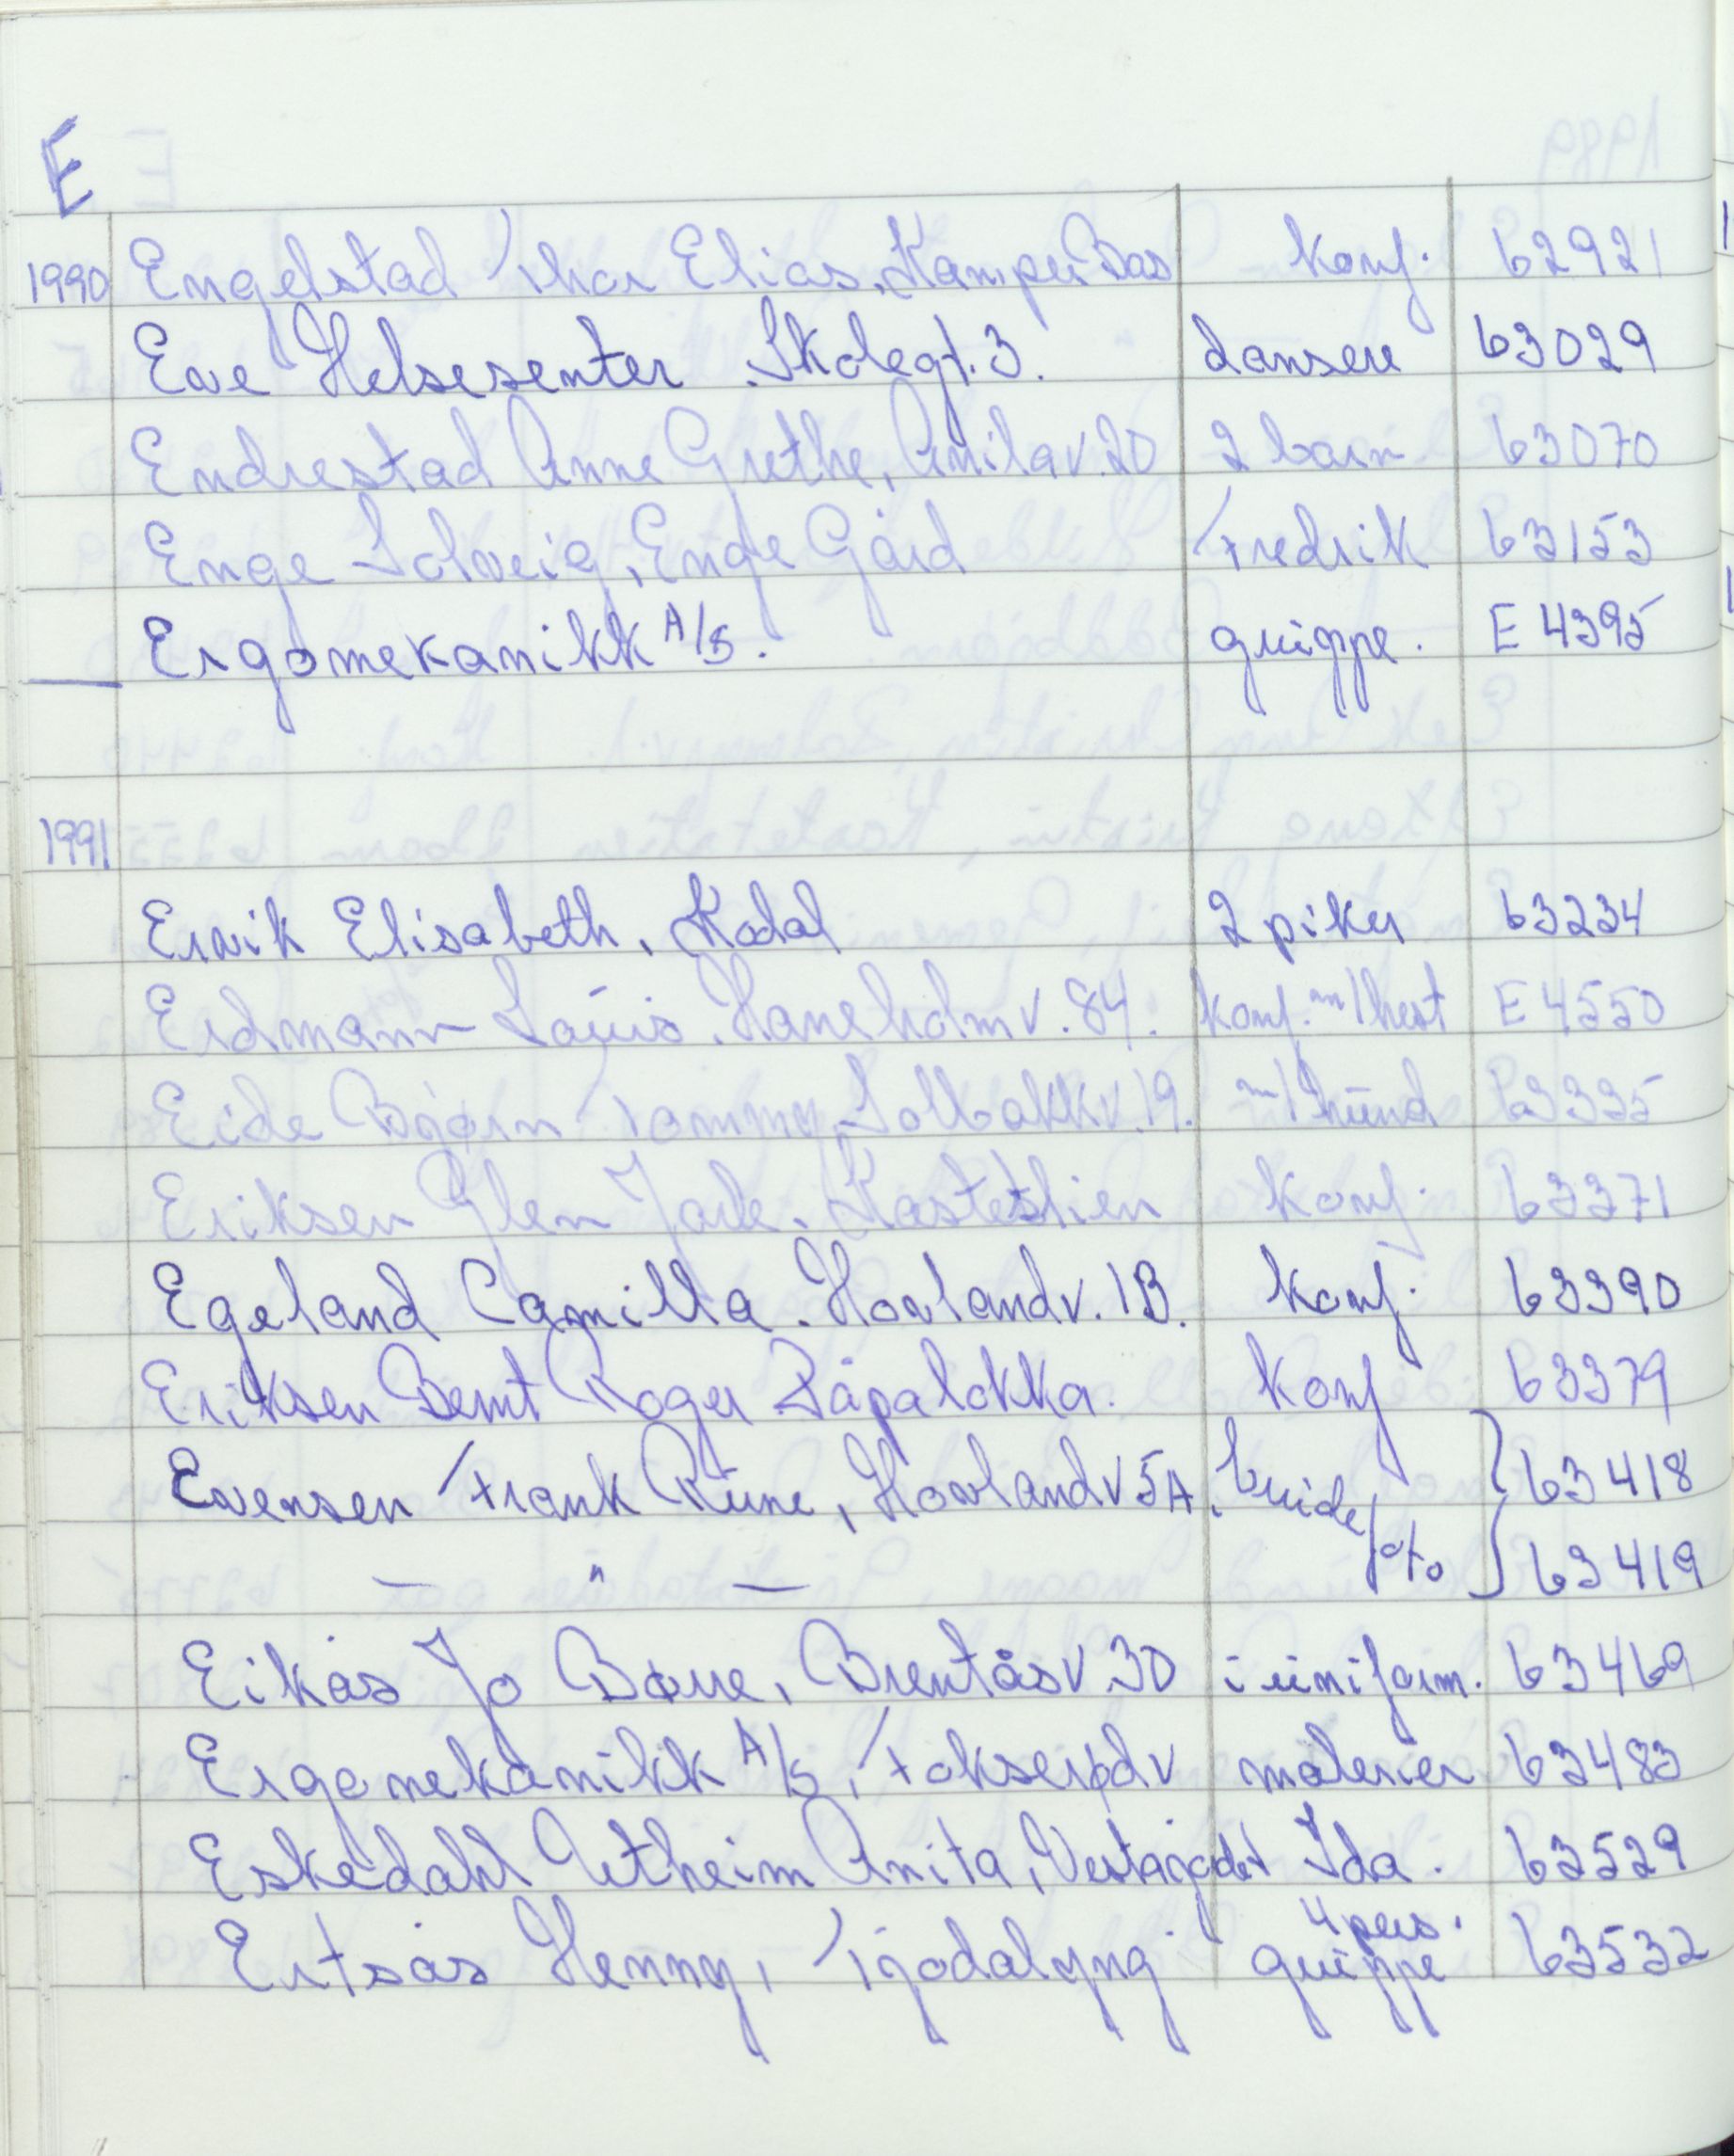 E
1990 Engelstad Thor Elias, Kamper Bas konf. 62921
Eve Helsesenter. Skolegt. 3. dansere 63029
Endrestad Anne Grethe, Anilav. 20 2 barn 63070
Enge Solveig, Enge Gård Fredrik 63153
Ergomekanikk A/S. gruppe. E 4395
1991
Ervik Elisabeth, Kodal 2 piker 63234
Erdmann Louis. Haneholmv. 84. konf. m/hest E 4550
Eide Bjørn Tommy, Solbakkv. 19. m/hund 63335
Eriksen Glen Jarle. Kastetlien konf. 63371
Egeland Camilla. Hovlandv. 1B. konf. 63390
Eriksen Bernt Roger Råpaløkka. konf 63379
Evensen Frank Rune, Hovlandv 5A. brude 63418
— " — foto 63419
Eikås Jo Børre, Brentåsv 30 i uniform. 63469
Ergonekanikk A/S, Fokserødv malerier 63483
Eskedahl Utheim Anita, Vestajordet Ida. 63529
4 pers.
Ertsås Henny, Tjodalyng gruppe 63532